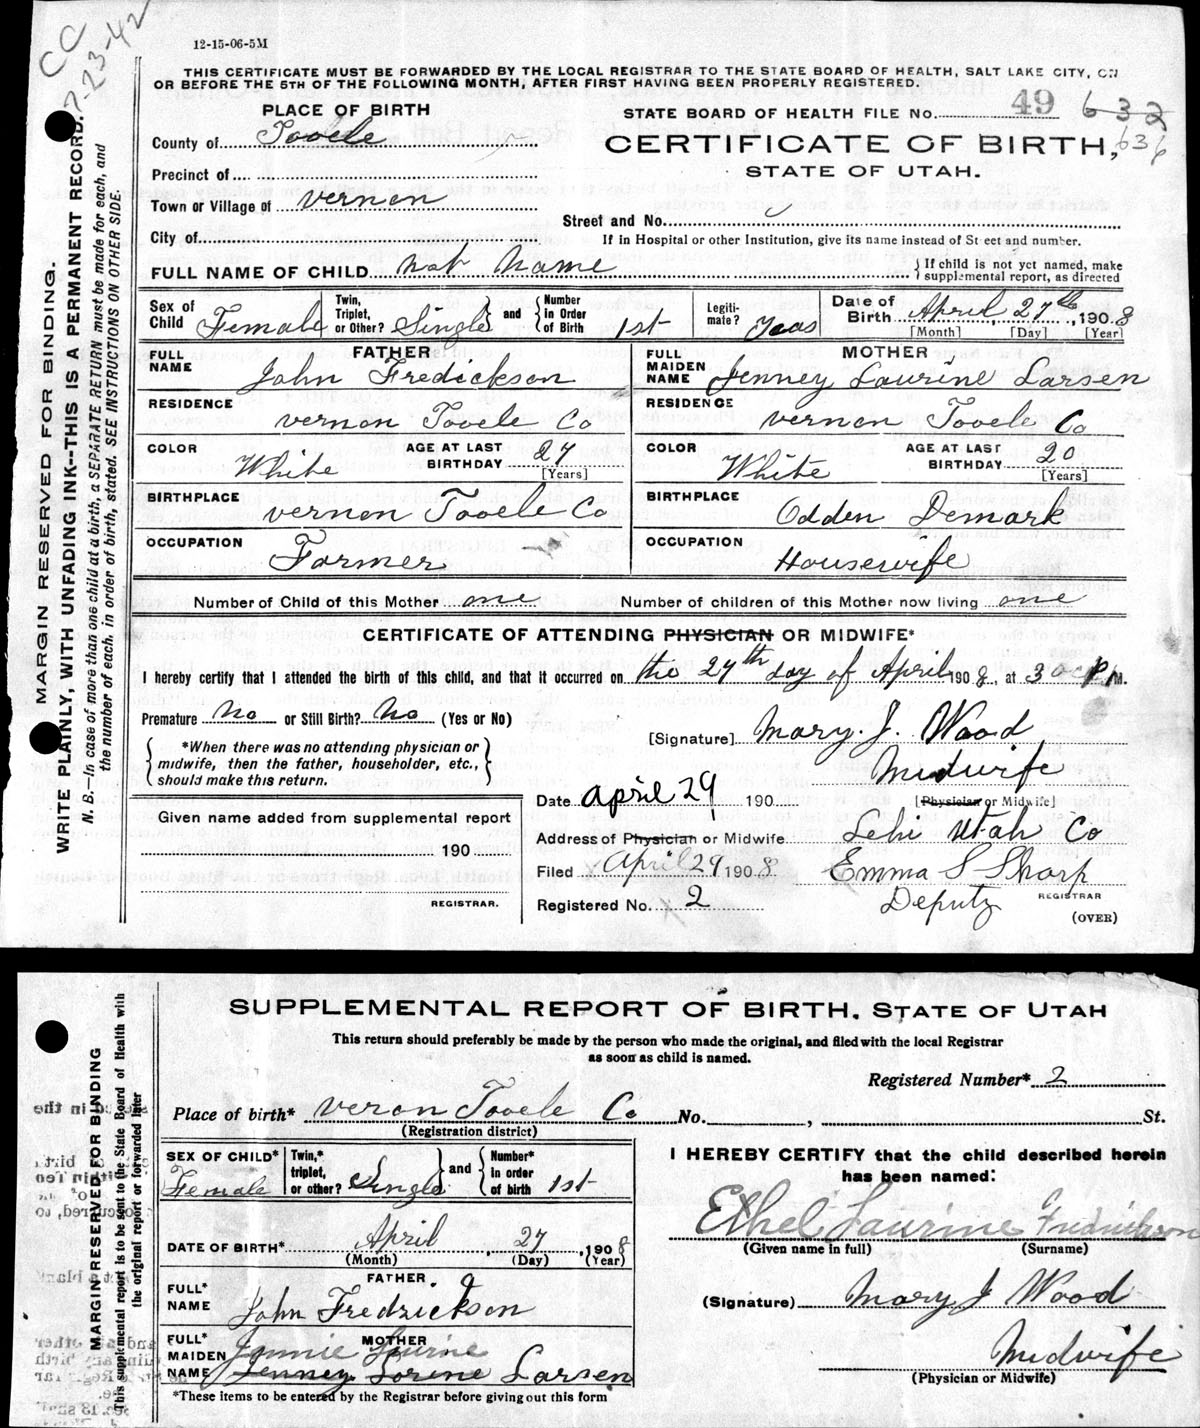 CC
7-23-42
12-15-06-5M
THIS CERTIFICATE MUST BE FORWARDED BY THE LOCAL REGISTRAR TO THE STATE BOARD OF HEALTH, SALT LAKE CITY, ON
OR BEFORE THE 5TH OF THE FOLLOWING MONTH, AFTER FIRST HAVING BEEN PROPERLY REGISTERED.
PLACE OF BIRTH
STATE BOARD OF HEALTH FILE NO. 49 632
636
County of Tooele
CERTIFICATE OF BIRTH,
Precinct of
STATE OF UTAH.
Town or Village of Vernon
Street and No.
City of
If in Hospital or other Institution, give its name instead of Street and number.
FULL NAME OF CHILD not Name { If child is not yet named, make supplemental report, as directed
Sex of Child Female Twin, Triplet, or Other? Single and Number in Order of Birth 1st Legitimate? Yaas Date of Birth April 27th, 1908
[Month] [Day] [Year]
FATHER MOTHER
FULL NAME John Fredickson FULL MAIDEN NAME Jenney Laurine Larsen
RESIDENCE vernon Tooele Co RESIDENCE vernon Tooele Co
COLOR White AGE AT LAST BIRTHDAY 27 [Years] COLOR White AGE AT LAST BIRTHDAY 20 [Years]
BIRTHPLACE vernon Tooele Co BIRTHPLACE Odden Demark
OCCUPATION Farmer OCCUPATION Housewife
Number of Child of this Mother one Number of children of this Mother now living one
CERTIFICATE OF ATTENDING PHYSICIAN OR MIDWIFE*
I hereby certify that I attended the birth of this child, and that it occurred on the 27th day of April 1908, at 3 P M.
Premature No or Still Birth? No (Yes or No)
[Signature] Mary. J. Wood
*When there was no attending physician or
midwife, then the father, householder, etc.,
should make this return.
Midwife
[Physician or Midwife]
Date april 29 190
Given name added from supplemental report
Address of Physician or Midwife Lehi Utah Co
190
Filed April 29 1908 Emma S Sharp
REGISTRAR
REGISTRAR.
Registered No. 2 Deputy
(OVER)
MARGIN RESERVED FOR BINDING.
WRITE PLAINLY, WITH UNFADING INK--THIS IS A PERMANENT RECORD.
N. B.—In case of more than one child at a birth, a SEPARATE RETURN must be made for each, and
the number of each, in order of birth, stated. SEE INSTRUCTIONS ON OTHER SIDE.
SUPPLEMENTAL REPORT OF BIRTH, STATE OF UTAH
This return should preferably be made by the person who made the original, and filed with the local Registrar
as soon as child is named.
Registered Number* 2
Place of birth* veron Tooele Co No. , St.
(Registration district)
SEX OF CHILD* Female Twin,* triplet, or other? Single and Number* in order of birth 1st
I HEREBY CERTIFY that the child described herein
has been named:
Ethel Laurine Fredrickson
(Given name in full) (Surname)
DATE OF BIRTH* April, 27, 1908
(Month) (Day) (Year)
FATHER
FULL* NAME John Fredrickson
(Signature) Mary J Wood
MOTHER
FULL* MAIDEN NAME Jennie Laurine
Jenney Lorine Larsen
Midwife
(Physician or Midwife)
*These items to be entered by the Registrar before giving out this form
MARGIN RESERVED FOR BINDING
This supplemental report is to be sent to the State Board of Health with
the original report or forwarded later